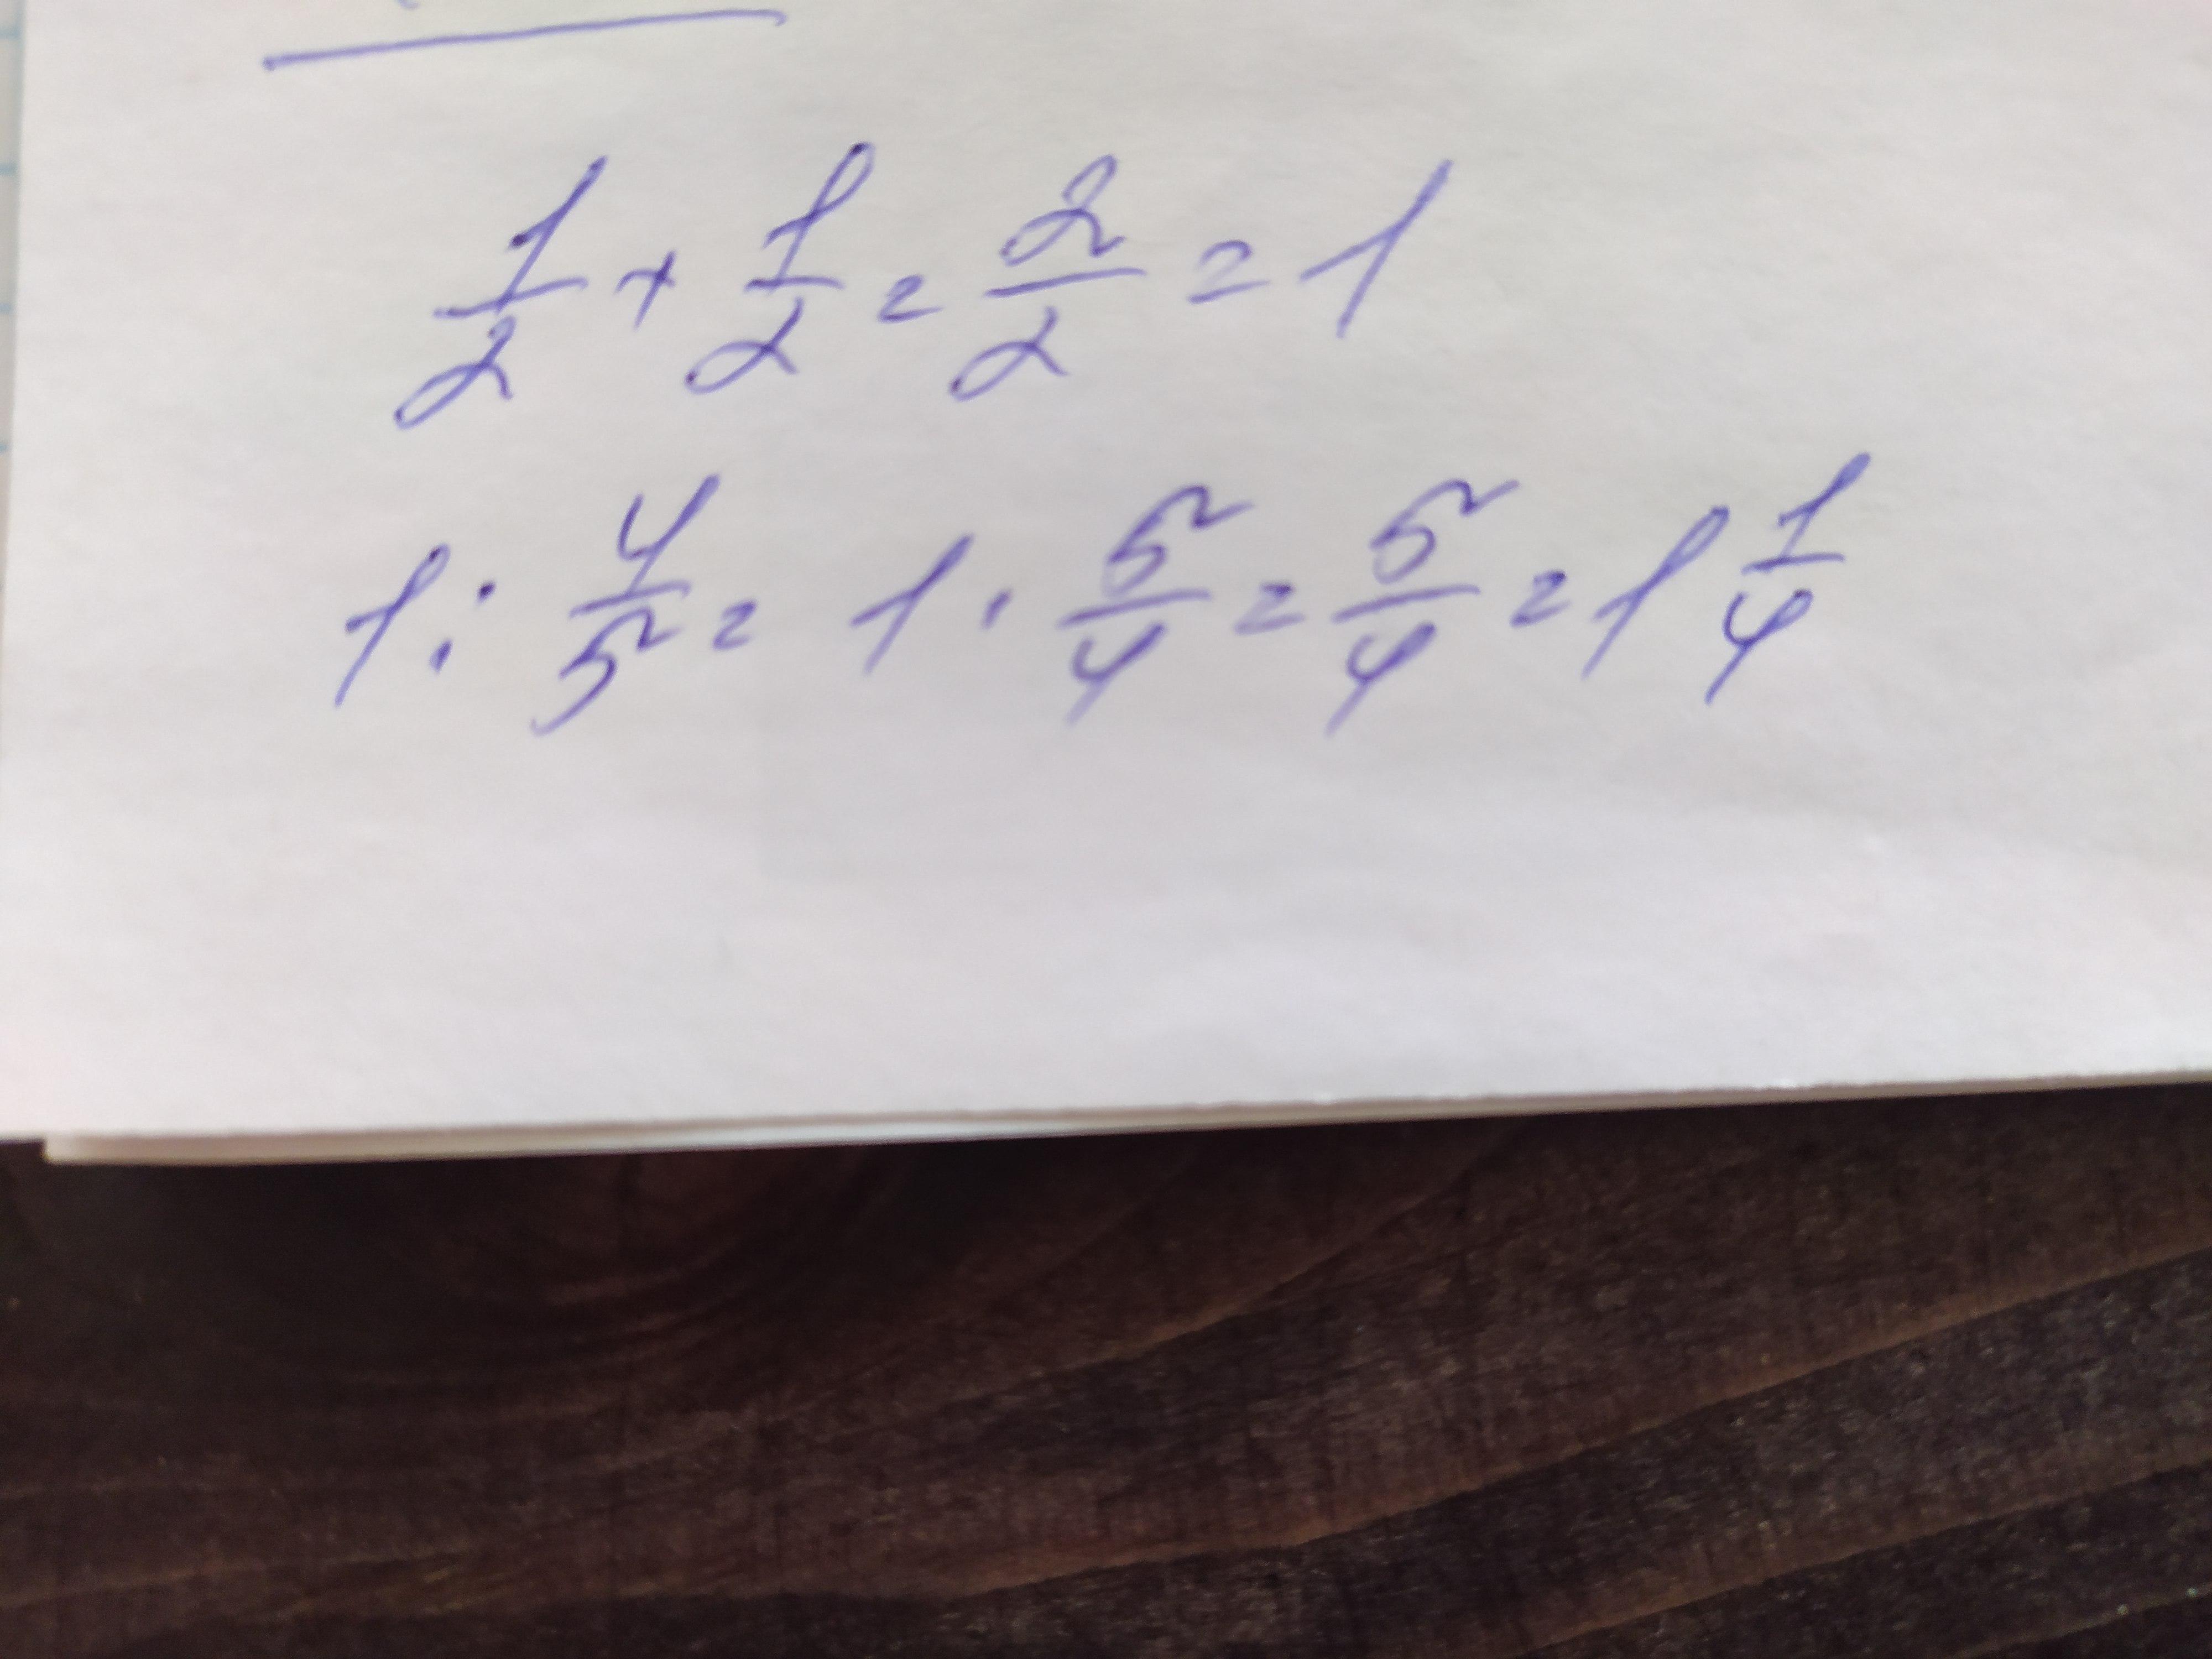 1/2 + 1/2 = 2/2 = 1
1 : 4/5 = 1 · 5/4 = 5/4 = 1 1/4